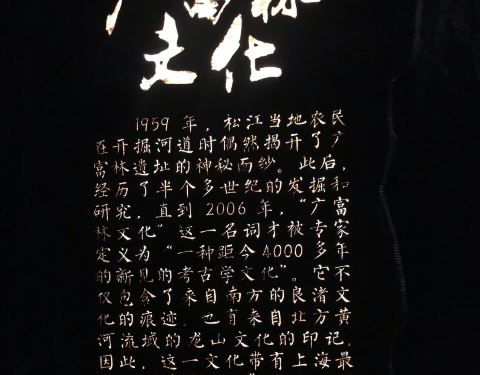 广富林
文化
1959 年，松江当地农民
在开掘河道时偶然揭开了广
富林遗址的神秘面纱。此后，
经历了半个多世纪的发掘和
研究，直到 2006 年，“广富
林文化”这一名词才被专家
定义为“一种距今4000 多年
的新见的考古学文化”。它不
仅包含了来自南方的良渚文
化的痕迹，也有来自北方黄
河流域的龙山文化的印记，
因此，这一文化带有上海最